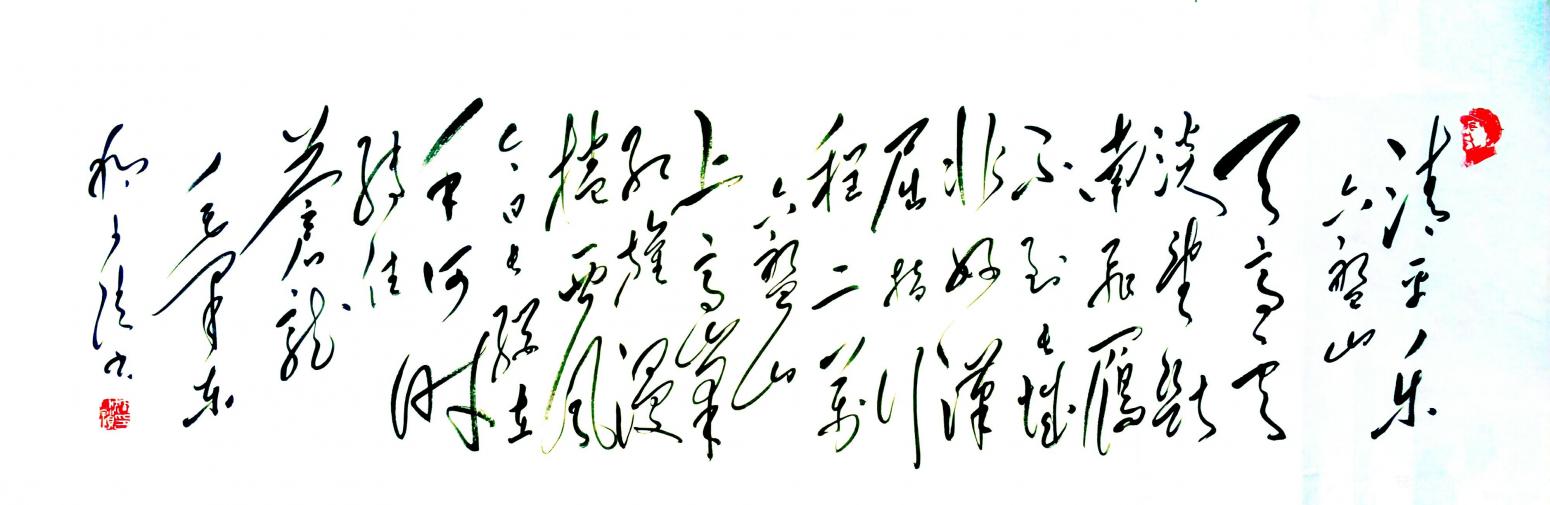 清平乐
六盘山
天高云
淡望断
南飞雁
不到长城
非好漢
屈指行
程二万
六盘山
上高峰
红旗漫
捲西风
今日长缨在
手何时
缚住
苍龙
毛泽东